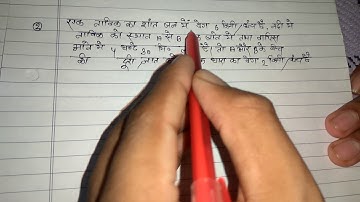 ② एक नाविक का शांत जल में वेग 6 किमी/घंटा है, नदी में
नाविक को स्थान A से B तक जाने में तथा वापिस
आने में 4 घण्टे 30 मि० A और B के बीच
की दूरी ज्ञात धारा का वेग 2 किमी/घंटा है